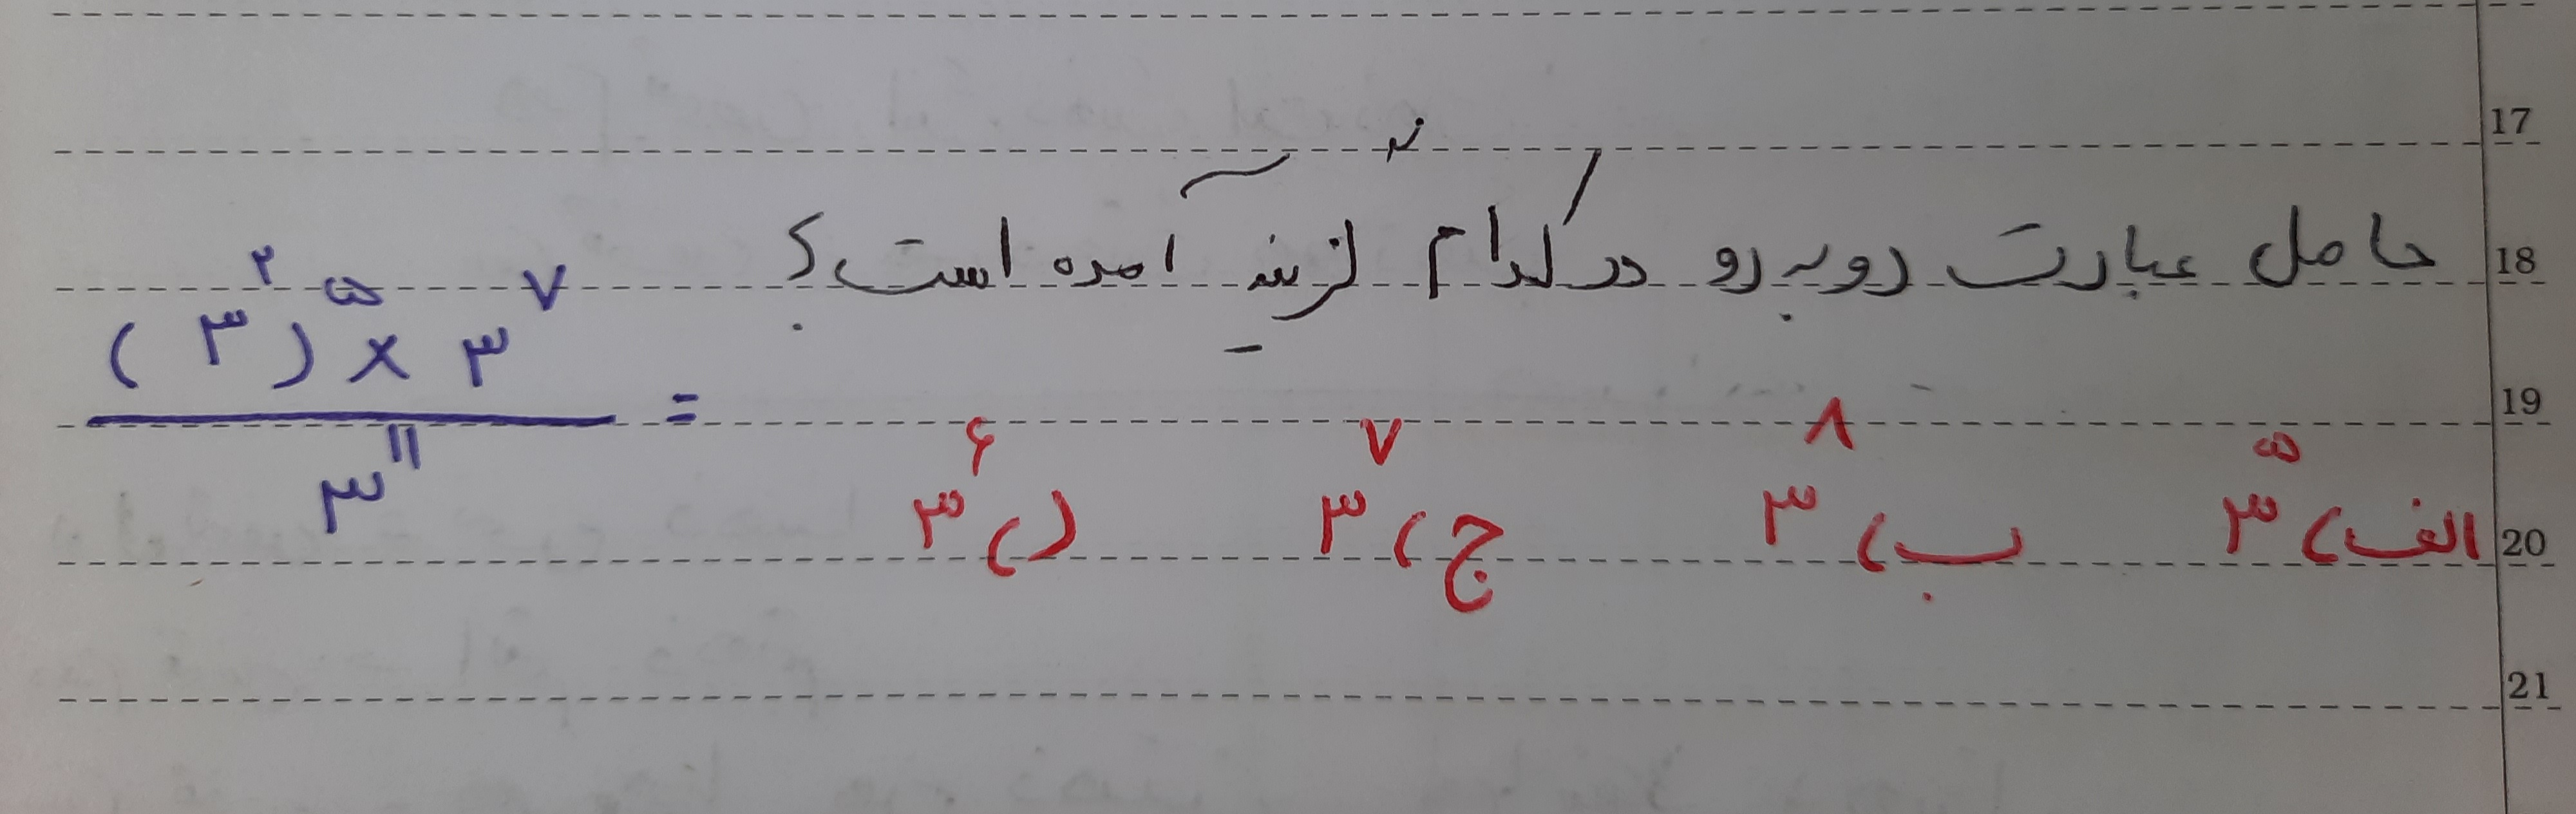 17
حاصل عبارت روبه‌رو در کدام گزینه آمده است؟
18
(۳^۲)^۵ × ۳^۷ / ۳^۱۱ =
19
الف) ۳^۵ ب) ۳^۸ ج) ۳^۷ د) ۳^۶
20
21